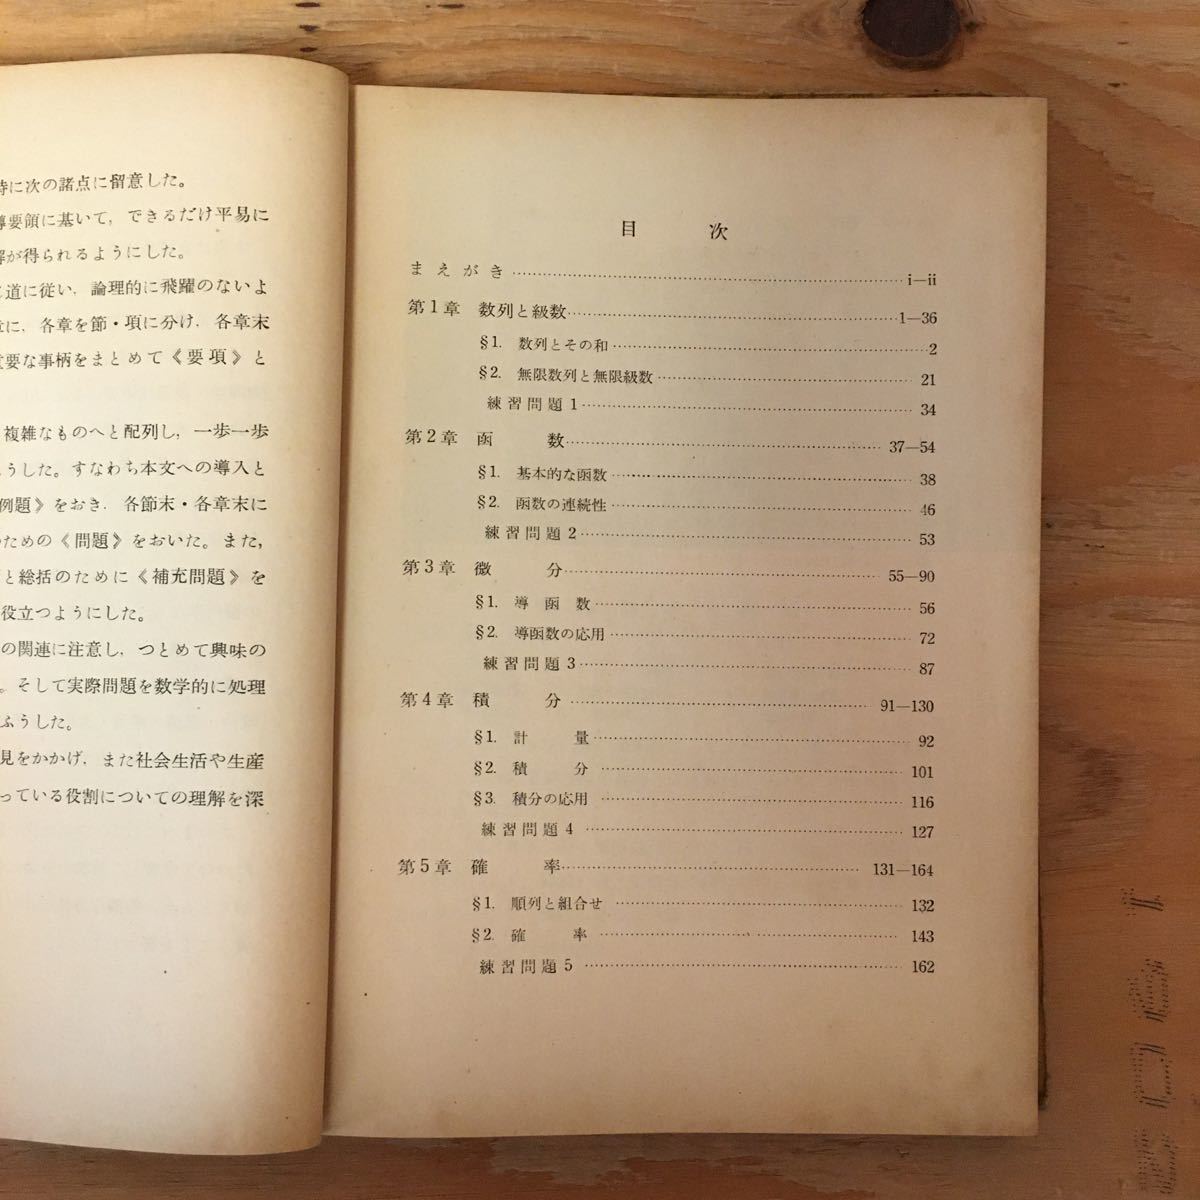 時に次の諸点に留意した。
導要領に基いて，できるだけ平易に
解が得られるようにした。
道に従い，論理的に飛躍のないよ
章に，各章を節・項に分け，各章末
重要な事柄をまとめて《要項》と
複雑なものへと配列し，一歩一歩
うした。すなわち本文への導入と
例題》をおき，各節末・各章末に
のための《問題》をおいた。また，
と総括のために《補充問題》を
役立つようにした。
の関連に注意し，つとめて興味の
。そして実際問題を数学的に処理
ふうした。
見をかかげ，また社会生活や生産
っている役割についての理解を深
目　次
まえがき……i—ii
第1章 数列と級数……1—36
§1. 数列とその和……2
§2. 無限数列と無限級数……21
練習問題1……34
第2章 函　数……37—54
§1. 基本的な函数……38
§2. 函数の連続性……46
練習問題2……53
第3章 微　分……55—90
§1. 導函数……56
§2. 導函数の応用……72
練習問題3……87
第4章 積　分……91—130
§1. 計　量……92
§2. 積　分……101
§3. 積分の応用……116
練習問題4……127
第5章 確　率……131—164
§1. 順列と組合せ……132
§2. 確　率……143
練習問題5……162